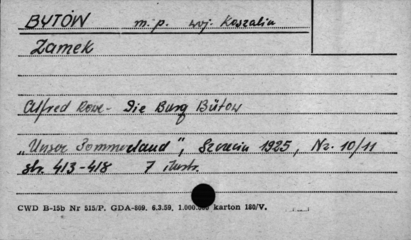 BYTÓW m.p. woj. Koszalin
Zamek
Alfred Rose - Die Burg Bütow
"Unser Pommerland", Szczecin 1925, Nr. 10/11
str. 413-418 7 ilustr.
CWD B-15b Nr 515/P. GDA-869. 6.3.59. 1.000.000 karton 180/V.